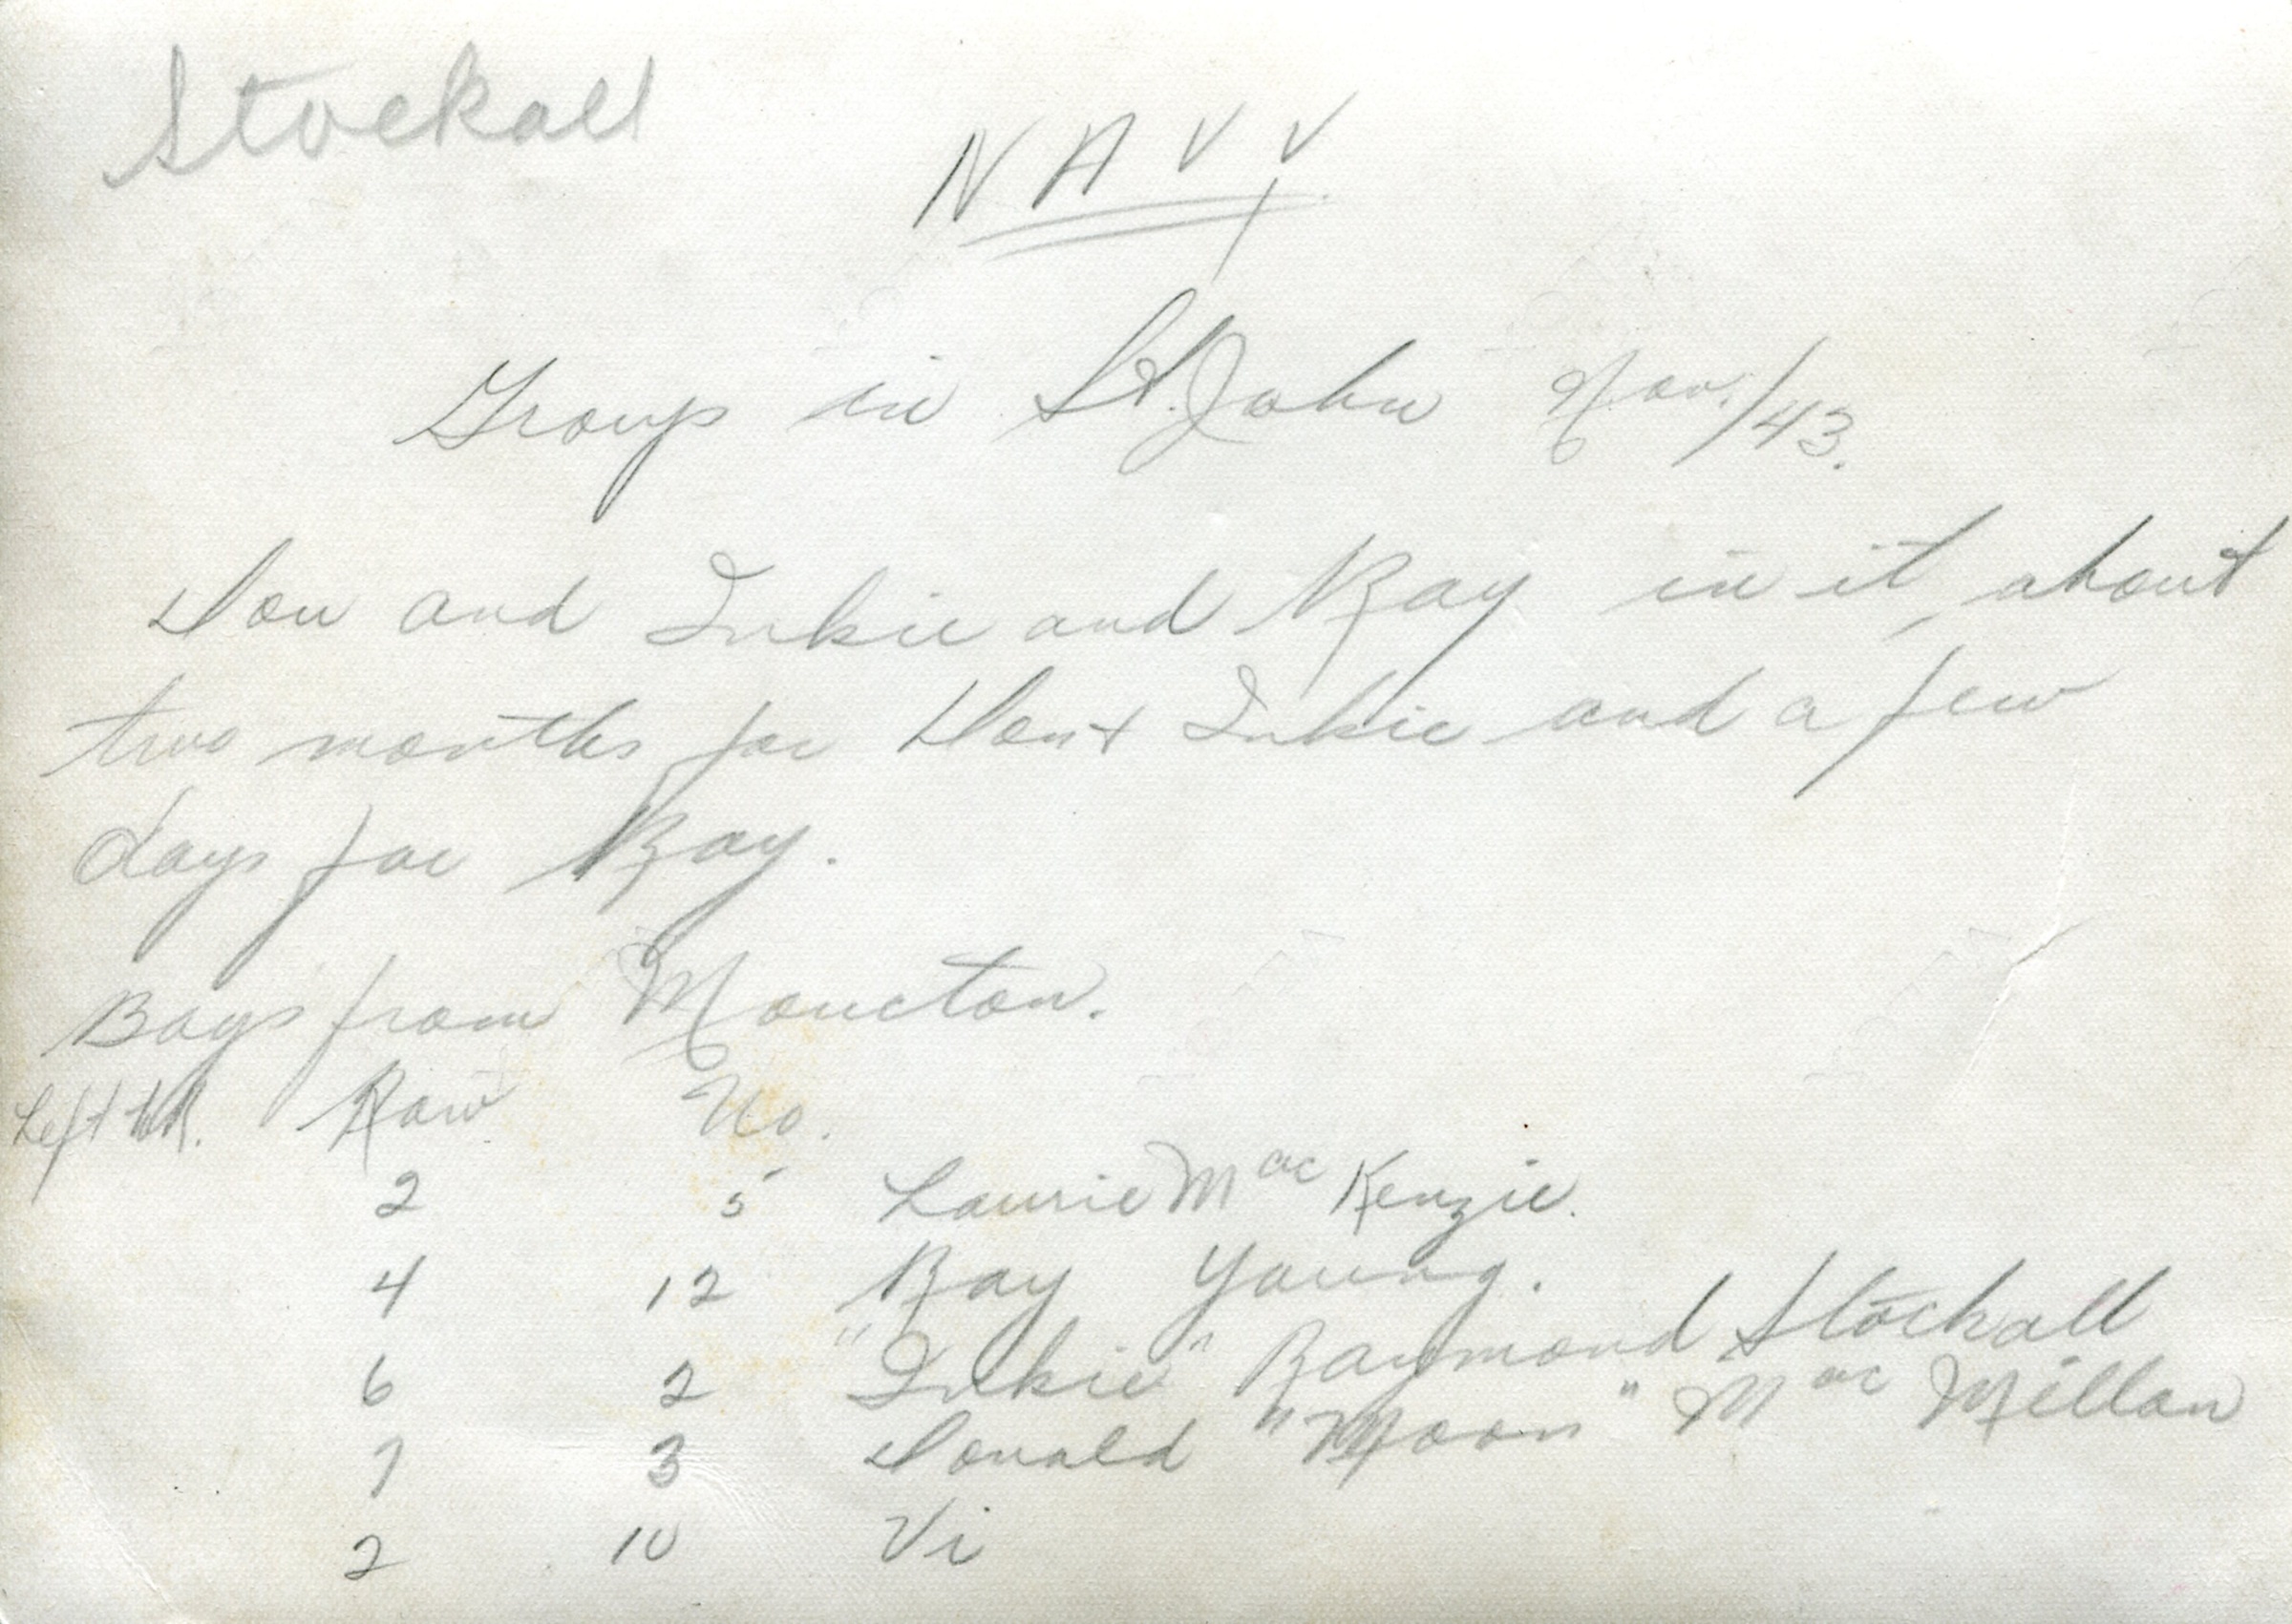 Stockall
NAVY
Group in St. John Nov./43.
Don and Inkie and Ray in it, about
two months for Don + Inkie and a few
days for Ray.
Boys from Moncton.
Left to R. Row No.
2 5 Laurie MacKenzie.
4 12 Ray Young.
6 2 "Inkie" Raymond Stockall
7 3 Donald "Moon" MacMillan
2 10 Vi